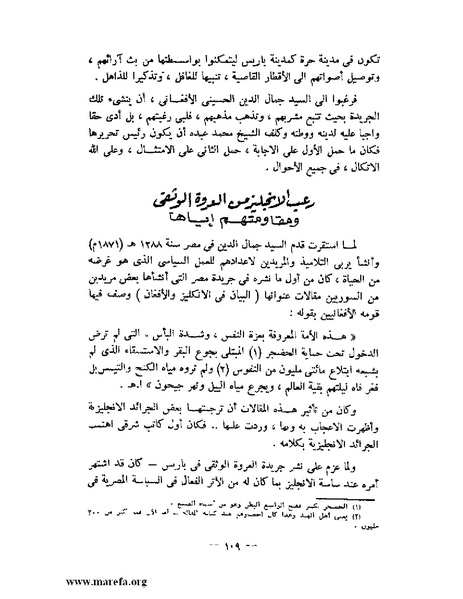 تكون فى مدينة حرة كمدينة باريس ليتمكنوا بواسطتها من بث آرائهم ،
وتوصيل أصواتهم الى الأقطار القاصية ، تنبيها للغافل ، وتذكيرا للذاهل .
فرغبوا الى السيد جمال الدين الحسينى الأفغانى ، أن ينشىء تلك
الجريدة بحيث تتبع مشربهم ، وتذهب مذهبهم ، فلبى رغبتهم ، بل أدى حقا
واجبا عليه لدينه ووطنه وكلف الشيخ محمد عبده أن يكون رئيس تحريرها
فكان ما حمل الأول على الاجابة ، حمل الثانى على الامتثال ، وعلى الله
الاتكال ، فى جميع الأحوال .
رعب الانجليز من العروة الوثقى
ومقاومتهم إياها
لما استقرت قدم السيد جمال الدين فى مصر سنة ١٢٨٨ هـ (١٨٧١م)
وأنشأ يربى التلاميذ والمريدين لاعدادهم للعمل السياسى الذى هو غرضه
من الحياة ، كان من أول ما نشره فى جريدة مصر التى أنشأها بعض مريديه
من السوريين مقالات عنوانها ( البيان فى الانكليز والأفغان ) وصف فيها
قومه الأفغانيين بقوله :
« هذه الأمة المعروفة بعزة النفس ، وشدة البأس . التى لم ترض
الدخول تحت حماية الحضجر (١) المبتلى بجوع البقر والاستسقاء الذى لم
يشبعه ابتلاع مائتى مليون من النفوس (٢) ولم تروه مياه الكنج والتيمس بل
فغر فاه ليلتهم بقية العالم ، ويجرع مياه النيل ونهر جيحون » ا.هـ .
وكان من تأثير هذه المقالات أن ترجمتها بعض الجرائد الانجليزية
وأظهرت الاعجاب به وبها ، وردت عليها .. فكان أول كاتب شرقى اهتمت
الجرائد الانجليزية بكلامه .
ولما عزم على نشر جريدة العروة الوثقى فى باريس — كان قد اشتهر
أمره عند ساسة الانجليز بما كان له من الأثر الفعال فى السياسة المصرية فى
(١) الحضجر بكسر ففتح الواسع البطن وهو من أسماء الضبع .
(٢) يعنى أهل الهند وهذا كان احصاؤهم عند كتابة المقالة ٢٠٠
مليون .
— ١٠٩ —
www.marefa.org